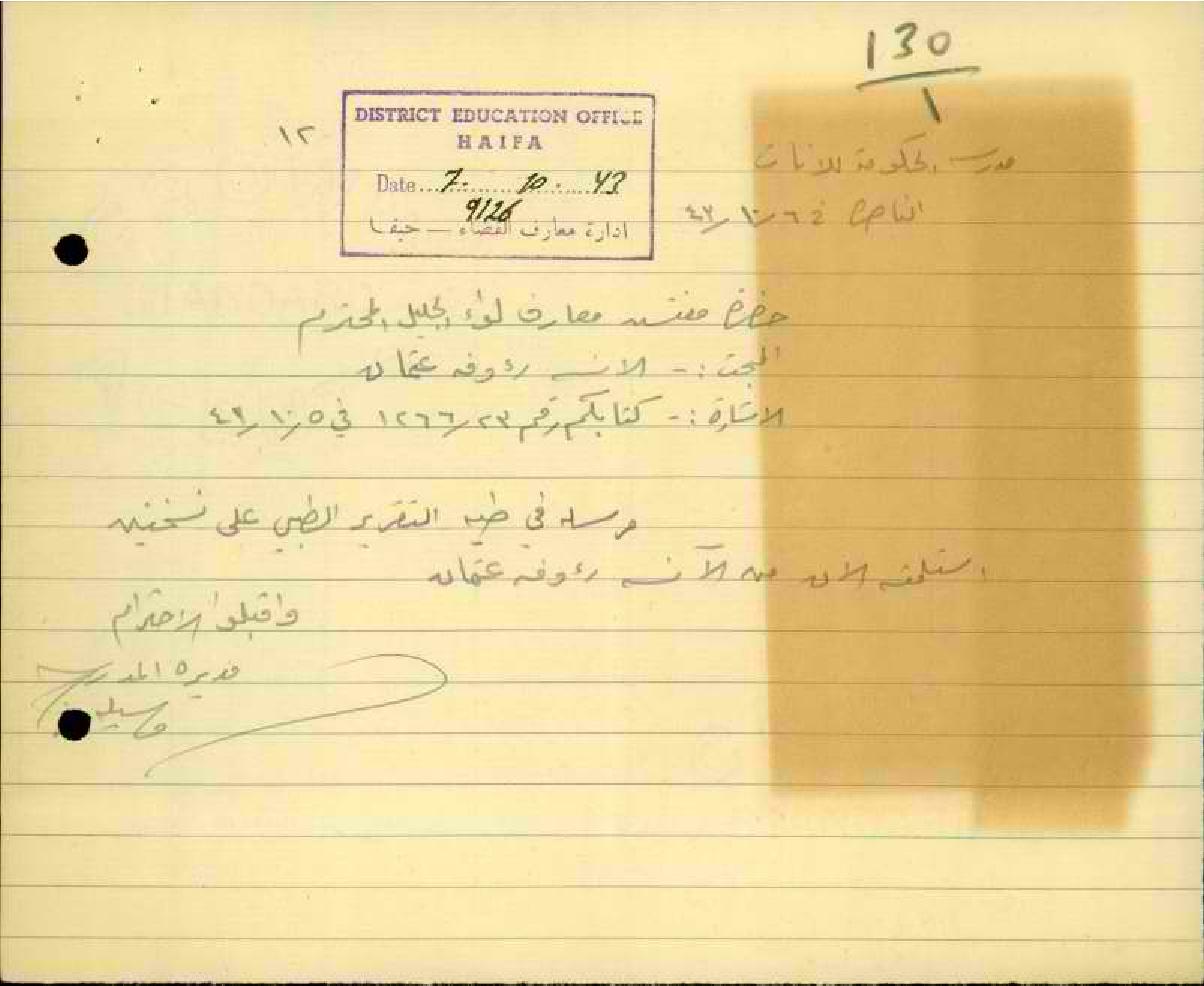 130
1
١٢
DISTRICT EDUCATION OFFICE
HAIFA
Date...7.......10.....43
9126
ادارة معارف القضاء — حيفا
مدرسة الحكومة للاناث
الناصرة في ٦/١٠/٤٣
حضرة مفتش معارف لواء الجليل المحترم
البحث :- الانسه رؤوفه عثمان
الاشارة :- كتابكم رقم ١٢٦٦/٢٣ في ٥/١٠/٤٣
مرسل في طيه التقرير الطبي على نسختين
استلمته الان من الآنسه رؤوفه عثمان
واقبلوا الاحترام
مديرة المدرسة